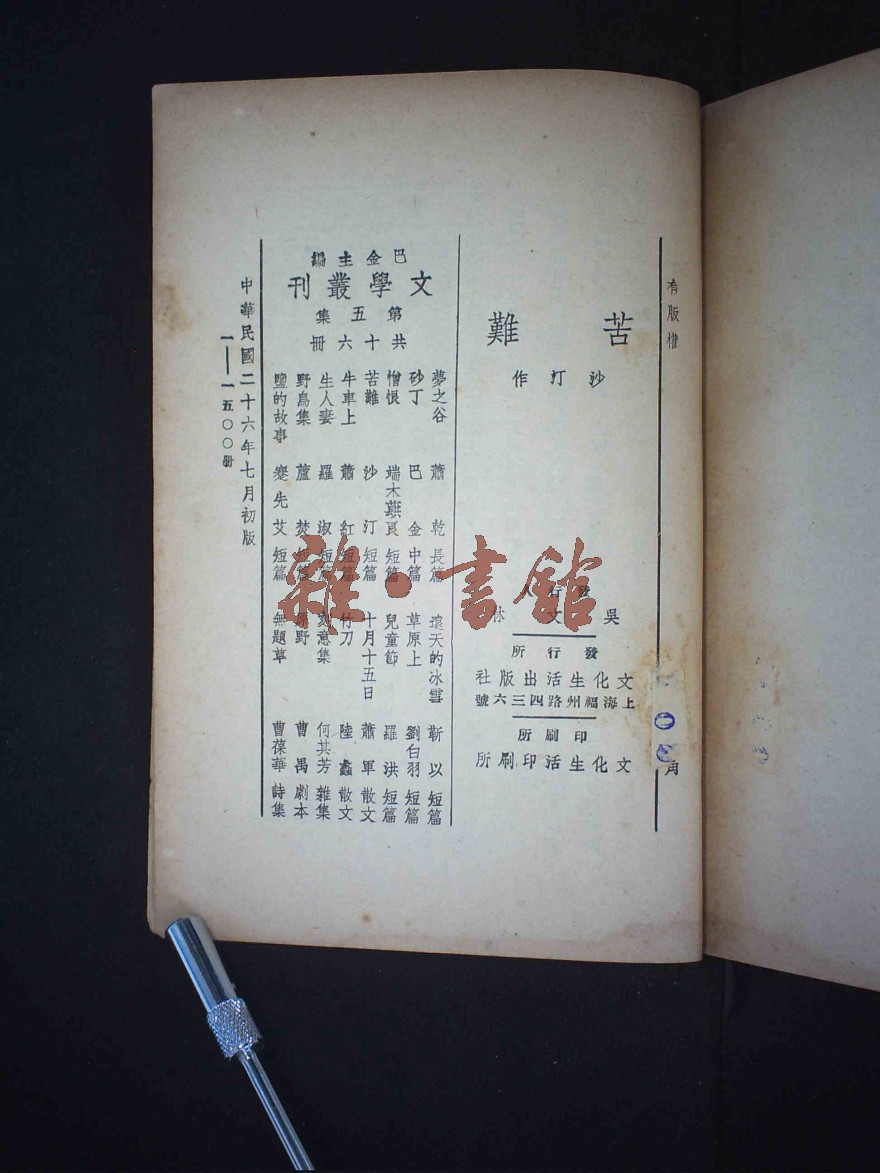 有版權
角
苦難
沙汀作
發行人
吳文林
發行所
文化生活出版社
上海福州路四三六號
印刷所
文化生活印刷所
巴金主編
文學叢刊
第五集
共十六冊
夢之谷 蕭乾 長篇 遠天的冰雪 靳以 短篇
砂丁 巴金 中篇 草原上 劉白羽 短篇
憎恨 端木蕻良 短篇 兒童節 羅洪 短篇
苦難 沙汀 短篇 十月十五日 蕭軍 散文
牛車上 蕭紅 短篇 竹刀 陸蠡 散文
生人妻 羅淑 短篇 刻意集 何其芳 雜集
野鳥集 蘆焚 短篇 原野 曹禺 劇本
鹽的故事 蹇先艾 短篇 無題草 曹葆華 詩集
中華民國二十六年七月初版
一——一五〇〇册
雜·書館